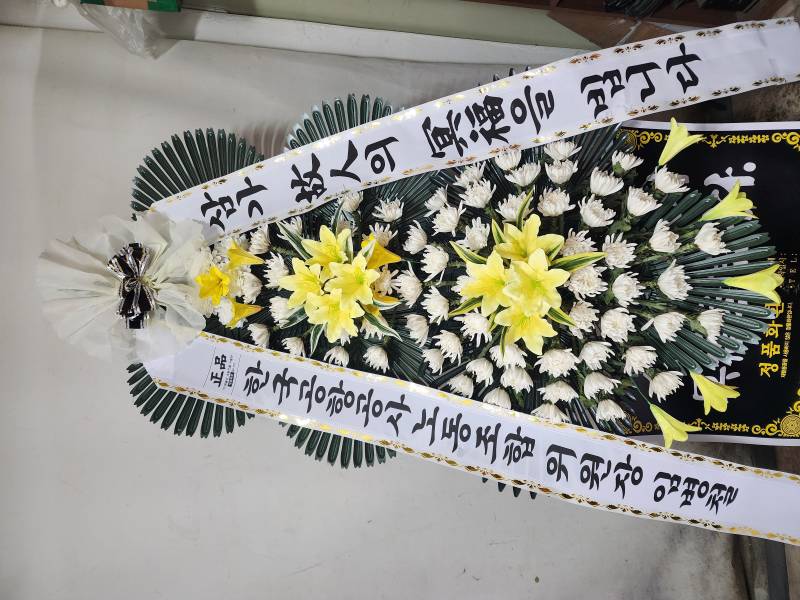 삼가 故人의 冥福을 빕니다
正品
한국공항공사 노동조합 위원장 임병철
정품화환